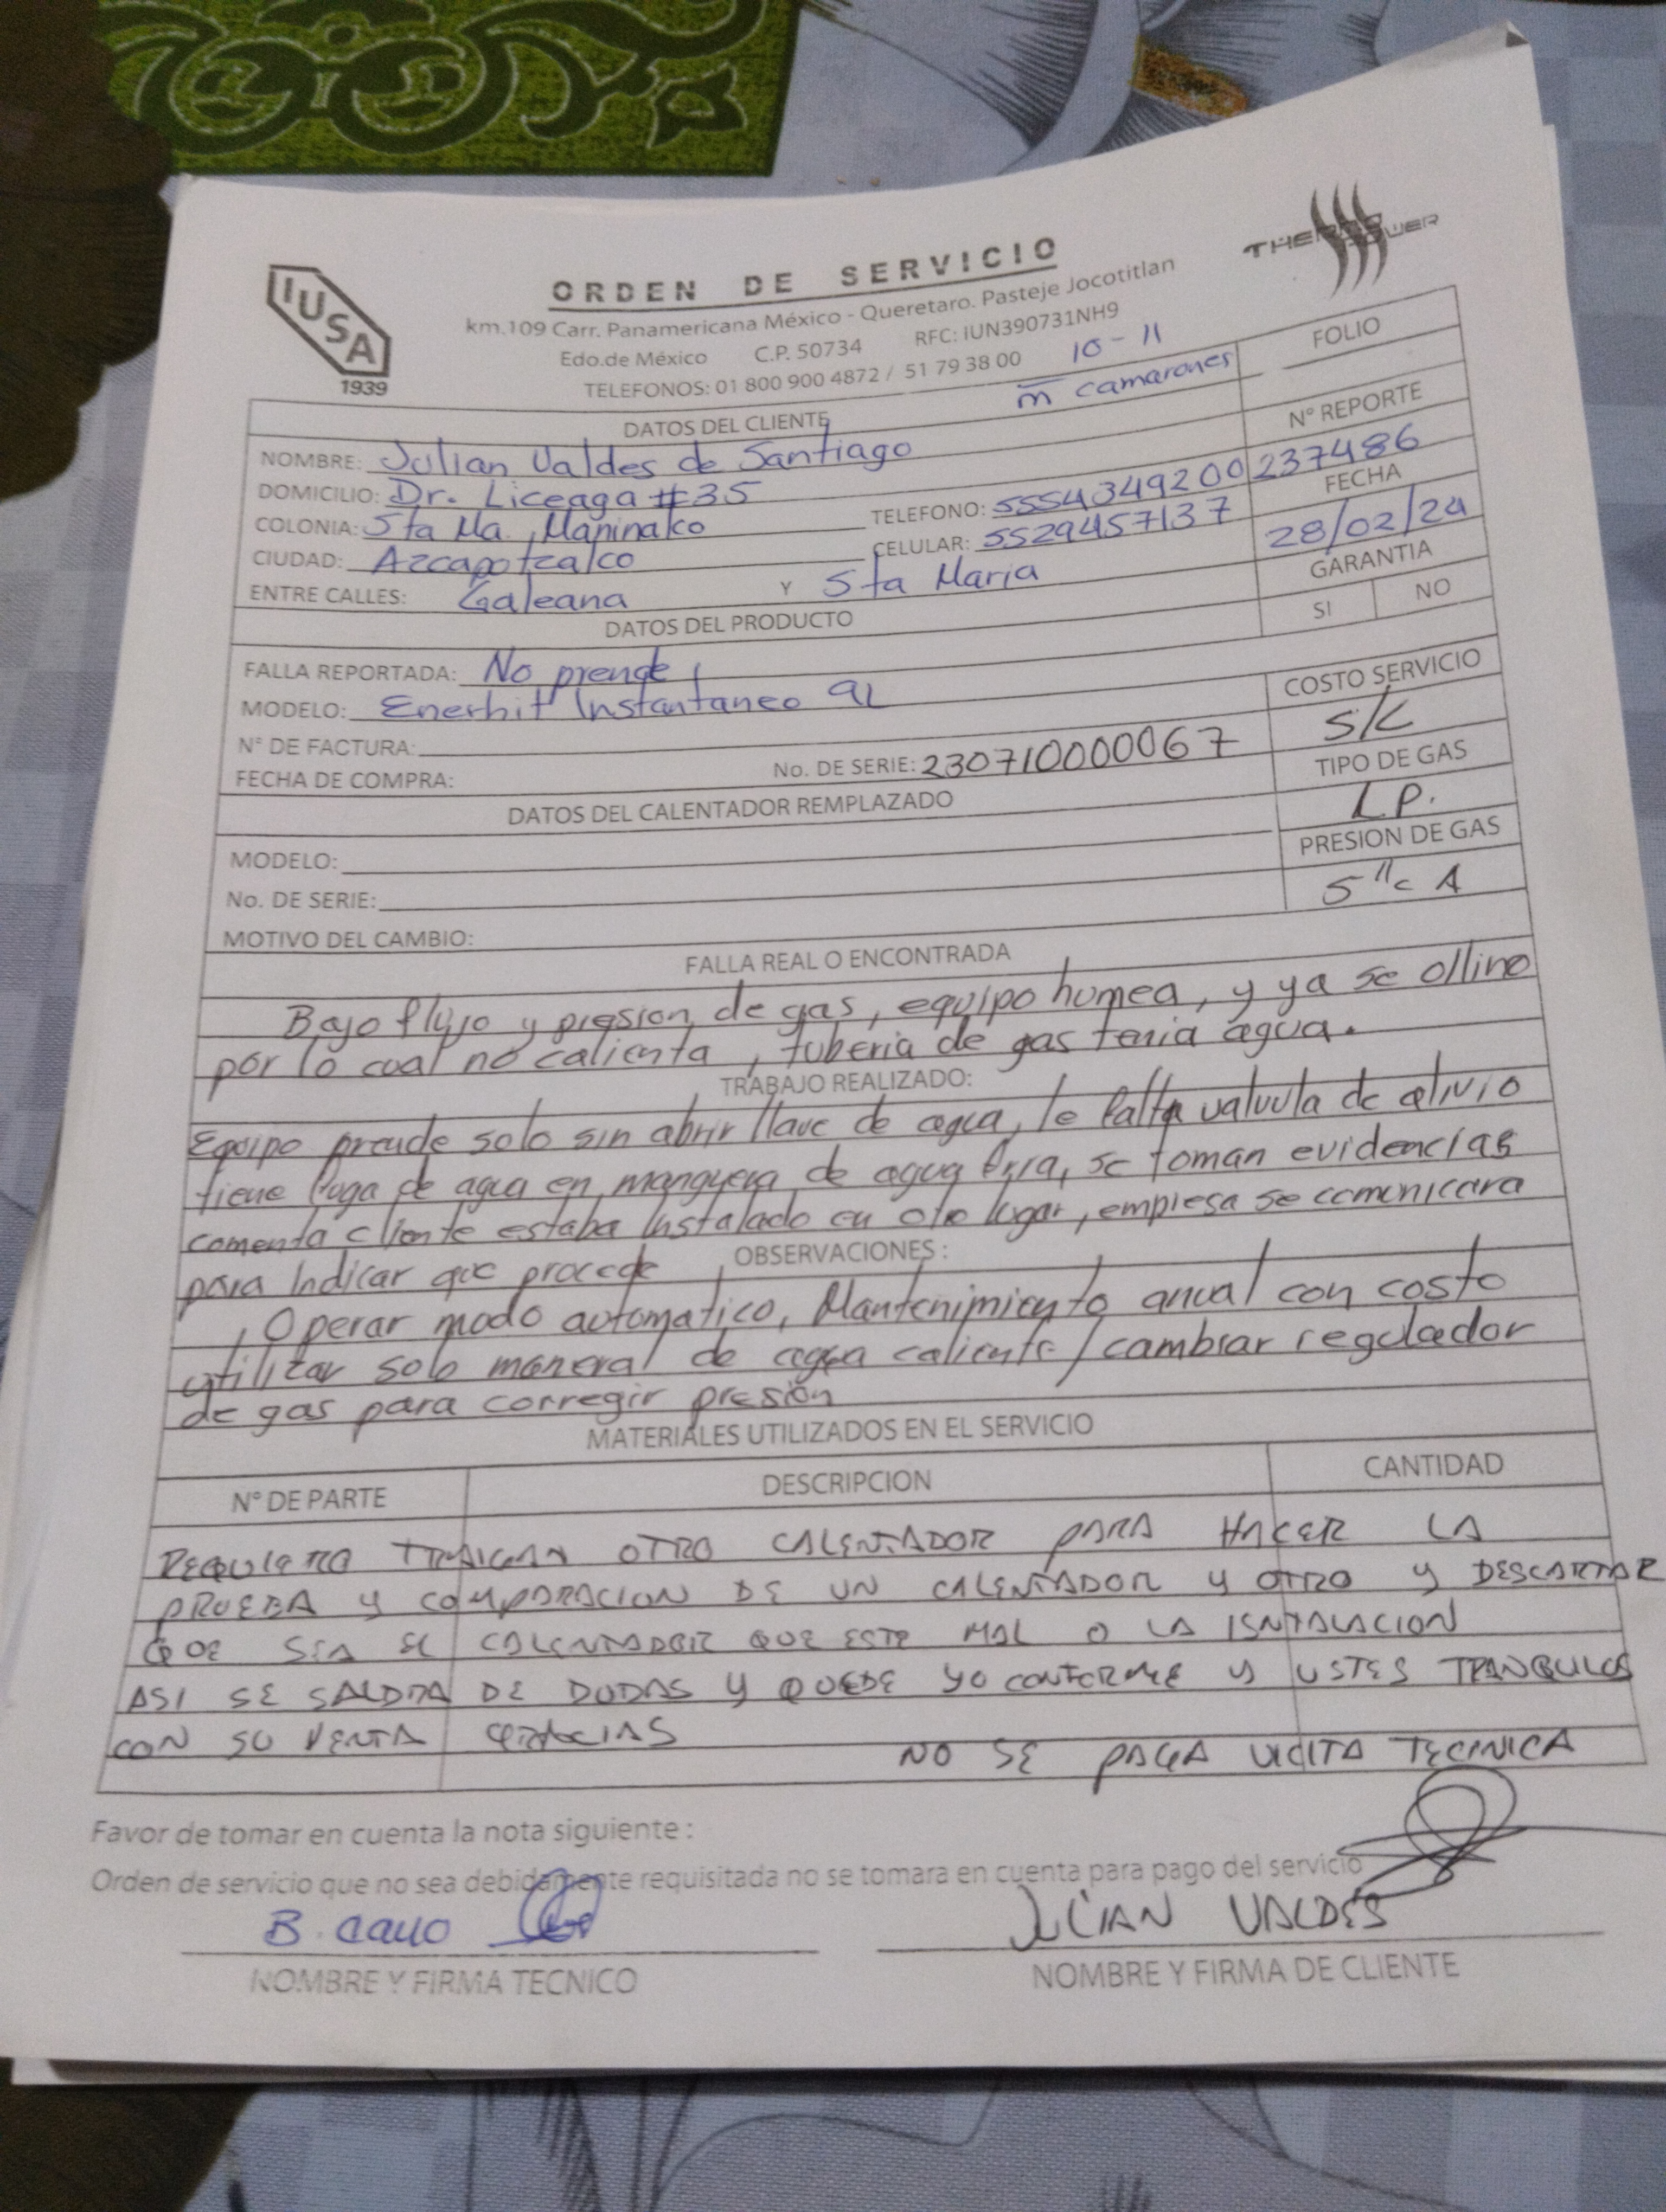 IUSA
1939
ORDEN DE SERVICIO
THERMO POWER
km.109 Carr. Panamericana México - Queretaro. Pasteje Jocotitlan
Edo.de México C.P. 50734 RFC: IUN390731NH9
TELEFONOS: 01 800 900 4872 / 51 79 38 00
10 - 11
m camarones
FOLIO
DATOS DEL CLIENTE
Nº REPORTE
237486
NOMBRE: Julian Valdes de Santiago
DOMICILIO: Dr. Liceaga #35
TELEFONO: 5554349200
FECHA
28/02/24
COLONIA: Sta Ma. Maninalco
CELULAR: 5529457137
CIUDAD: Azcapotzalco
GARANTIA
SI NO
ENTRE CALLES: Galeana Y Sta Maria
DATOS DEL PRODUCTO
FALLA REPORTADA: No prende
COSTO SERVICIO
S/C
MODELO: Enerhit Instantaneo 9L
N° DE FACTURA:
No. DE SERIE: 230710000067
TIPO DE GAS
L.P.
FECHA DE COMPRA:
DATOS DEL CALENTADOR REMPLAZADO
PRESION DE GAS
5"c A
MODELO:
No. DE SERIE:
MOTIVO DEL CAMBIO:
FALLA REAL O ENCONTRADA
Bajo flujo y presion de gas, equipo humea, y ya se ollino
por lo cual no calienta, tuberia de gas tenia agua.
TRABAJO REALIZADO:
Equipo prende solo sin abrir llave de agua, le falta valvula de alivio
tiene fuga de agua en manguera de agua fria, se toman evidencias
comenta cliente estaba Instalado en otro lugar, empresa se comunicara
para Indicar que procede
OBSERVACIONES:
Operar modo automatico, Mantenimiento anual con costo
utilizar solo maneral de agua caliente / cambiar regulador
de gas para corregir presión
MATERIALES UTILIZADOS EN EL SERVICIO
N° DE PARTE DESCRIPCION CANTIDAD
REQUIERO TRAIGAN OTRO CALENTADOR PARA HACER LA
PRUEBA Y COMPARACION DE UN CALENTADOR Y OTRO Y DESCARTAR
QUE SEA EL CALENTADOR QUE ESTE MAL O LA ISNTALACION
ASI SE SALDRA DE DUDAS Y QUEDE YO CONFORME Y USTES TRANQUILOS
CON SU VENTA GRACIAS
NO SE PAGA VICITA TECINICA
Favor de tomar en cuenta la nota siguiente :
Orden de servicio que no sea debidamente requisitada no se tomara en cuenta para pago del servicio
B. Cano
JULIAN VALDES
NOMBRE Y FIRMA TECNICO
NOMBRE Y FIRMA DE CLIENTE